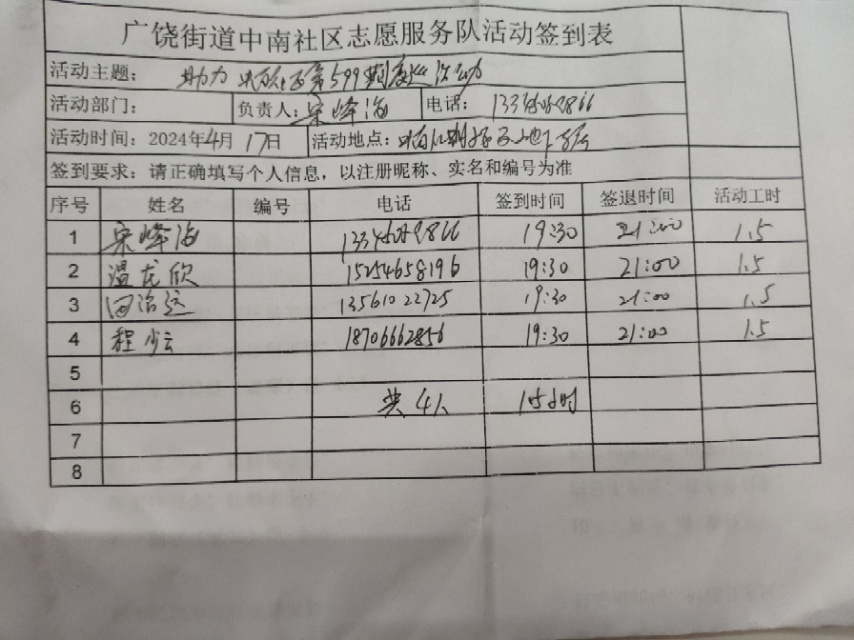 广饶街道中南社区志愿服务队活动签到表
活动主题： 助力 第599期夜巡活动
活动部门： 负责人：宋峰海 电话：
活动时间：2024年4月17日 活动地点：
签到要求：请正确填写个人信息，以注册昵称、实名和编号为准
序号 姓名 编号 电话 签到时间 签退时间 活动工时
1 宋峰海 19:30 21:00 1.5
2 温龙欣 15254658196 19:30 21:00 1.5
3 13561022725 19:30 21:00 1.5
4 程少云 18706662856 19:30 21:00 1.5
5
6 共4人 小时
7
8